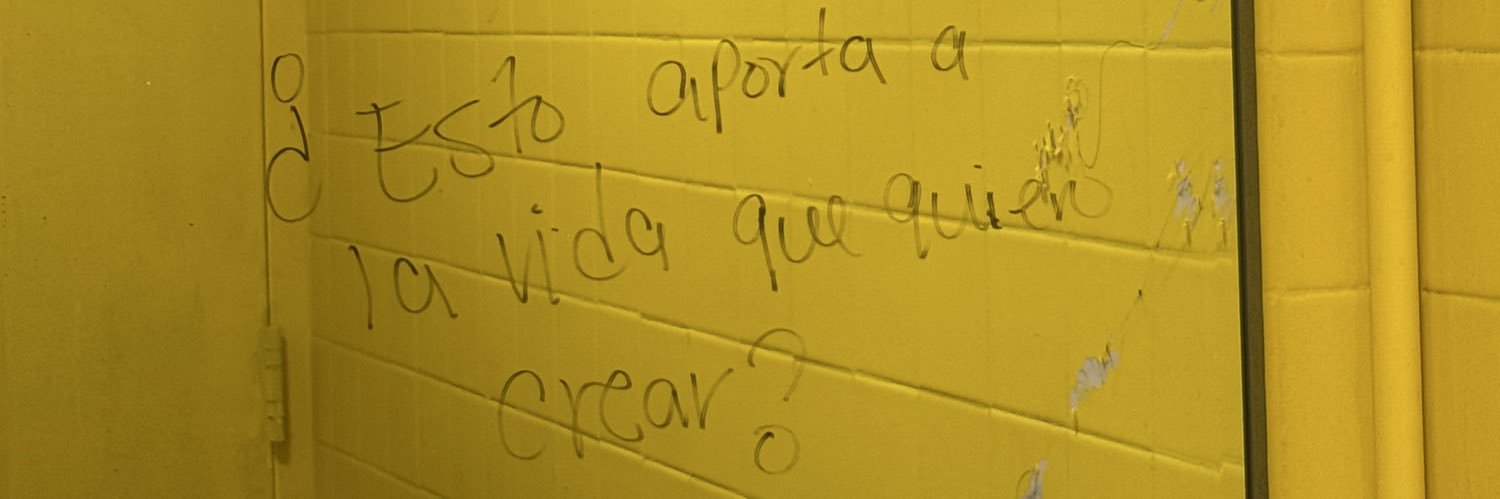 ¿Esto aporta a
la vida que quiero
crear?